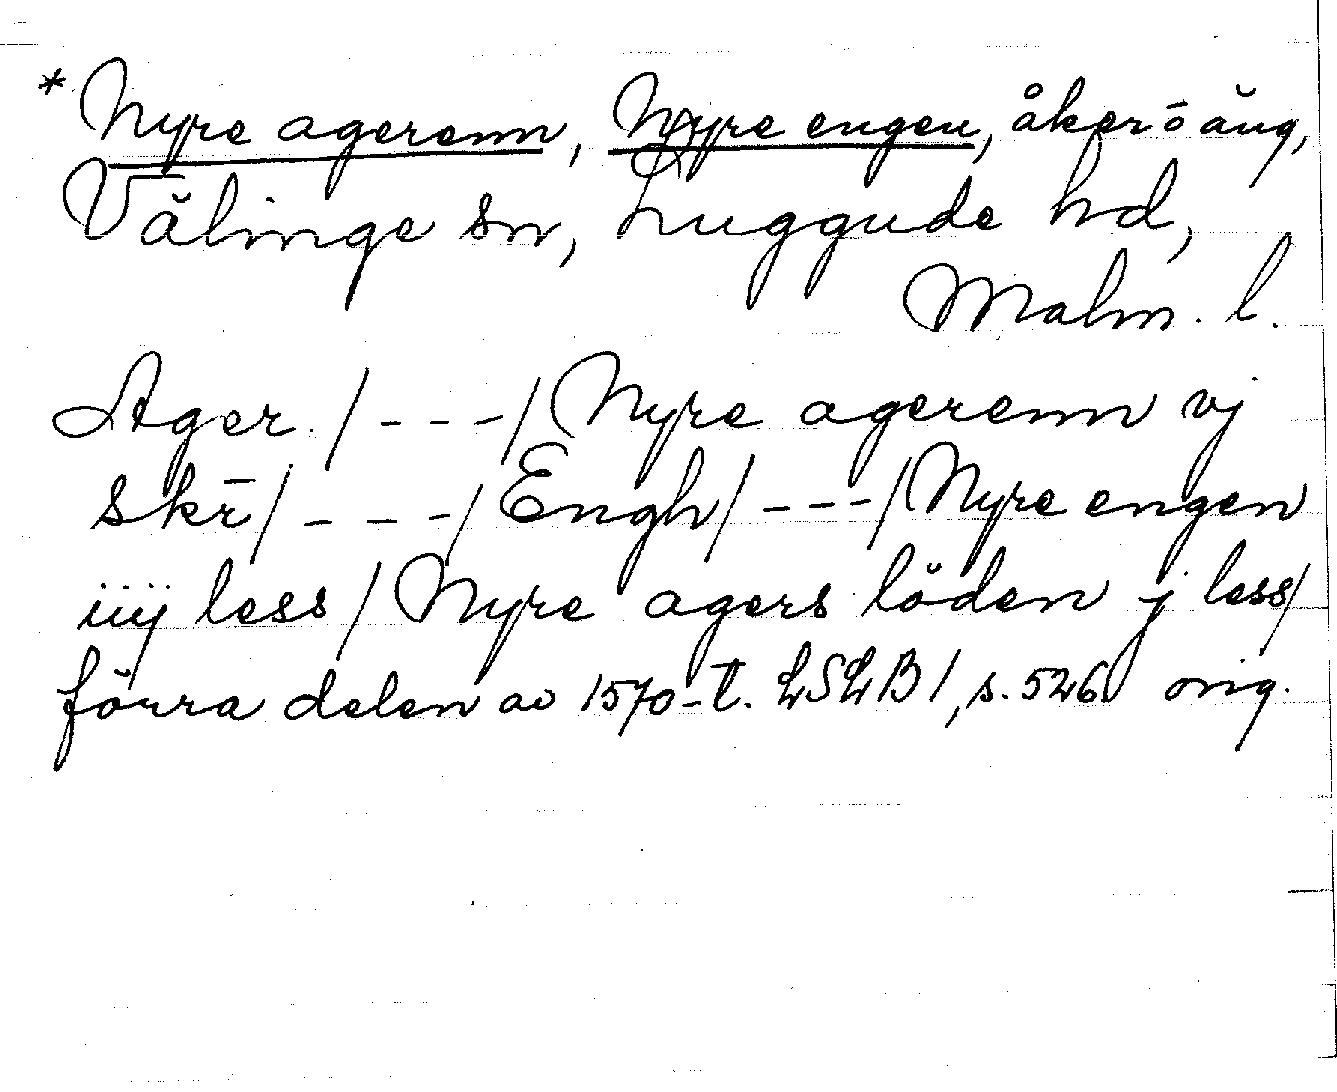 * Nyre agerenn, Nyre engen, åker o äng,
Välinge sn, Luggude hd,
Malm. l.
Ager. /---/ Nyre agerenn vj
skr̄/---/ Engh/---/ Nyre engen
iiij less / Nyre agers löden j less/
förra delen av 1570-t. LSLB 1, s. 526 orig.